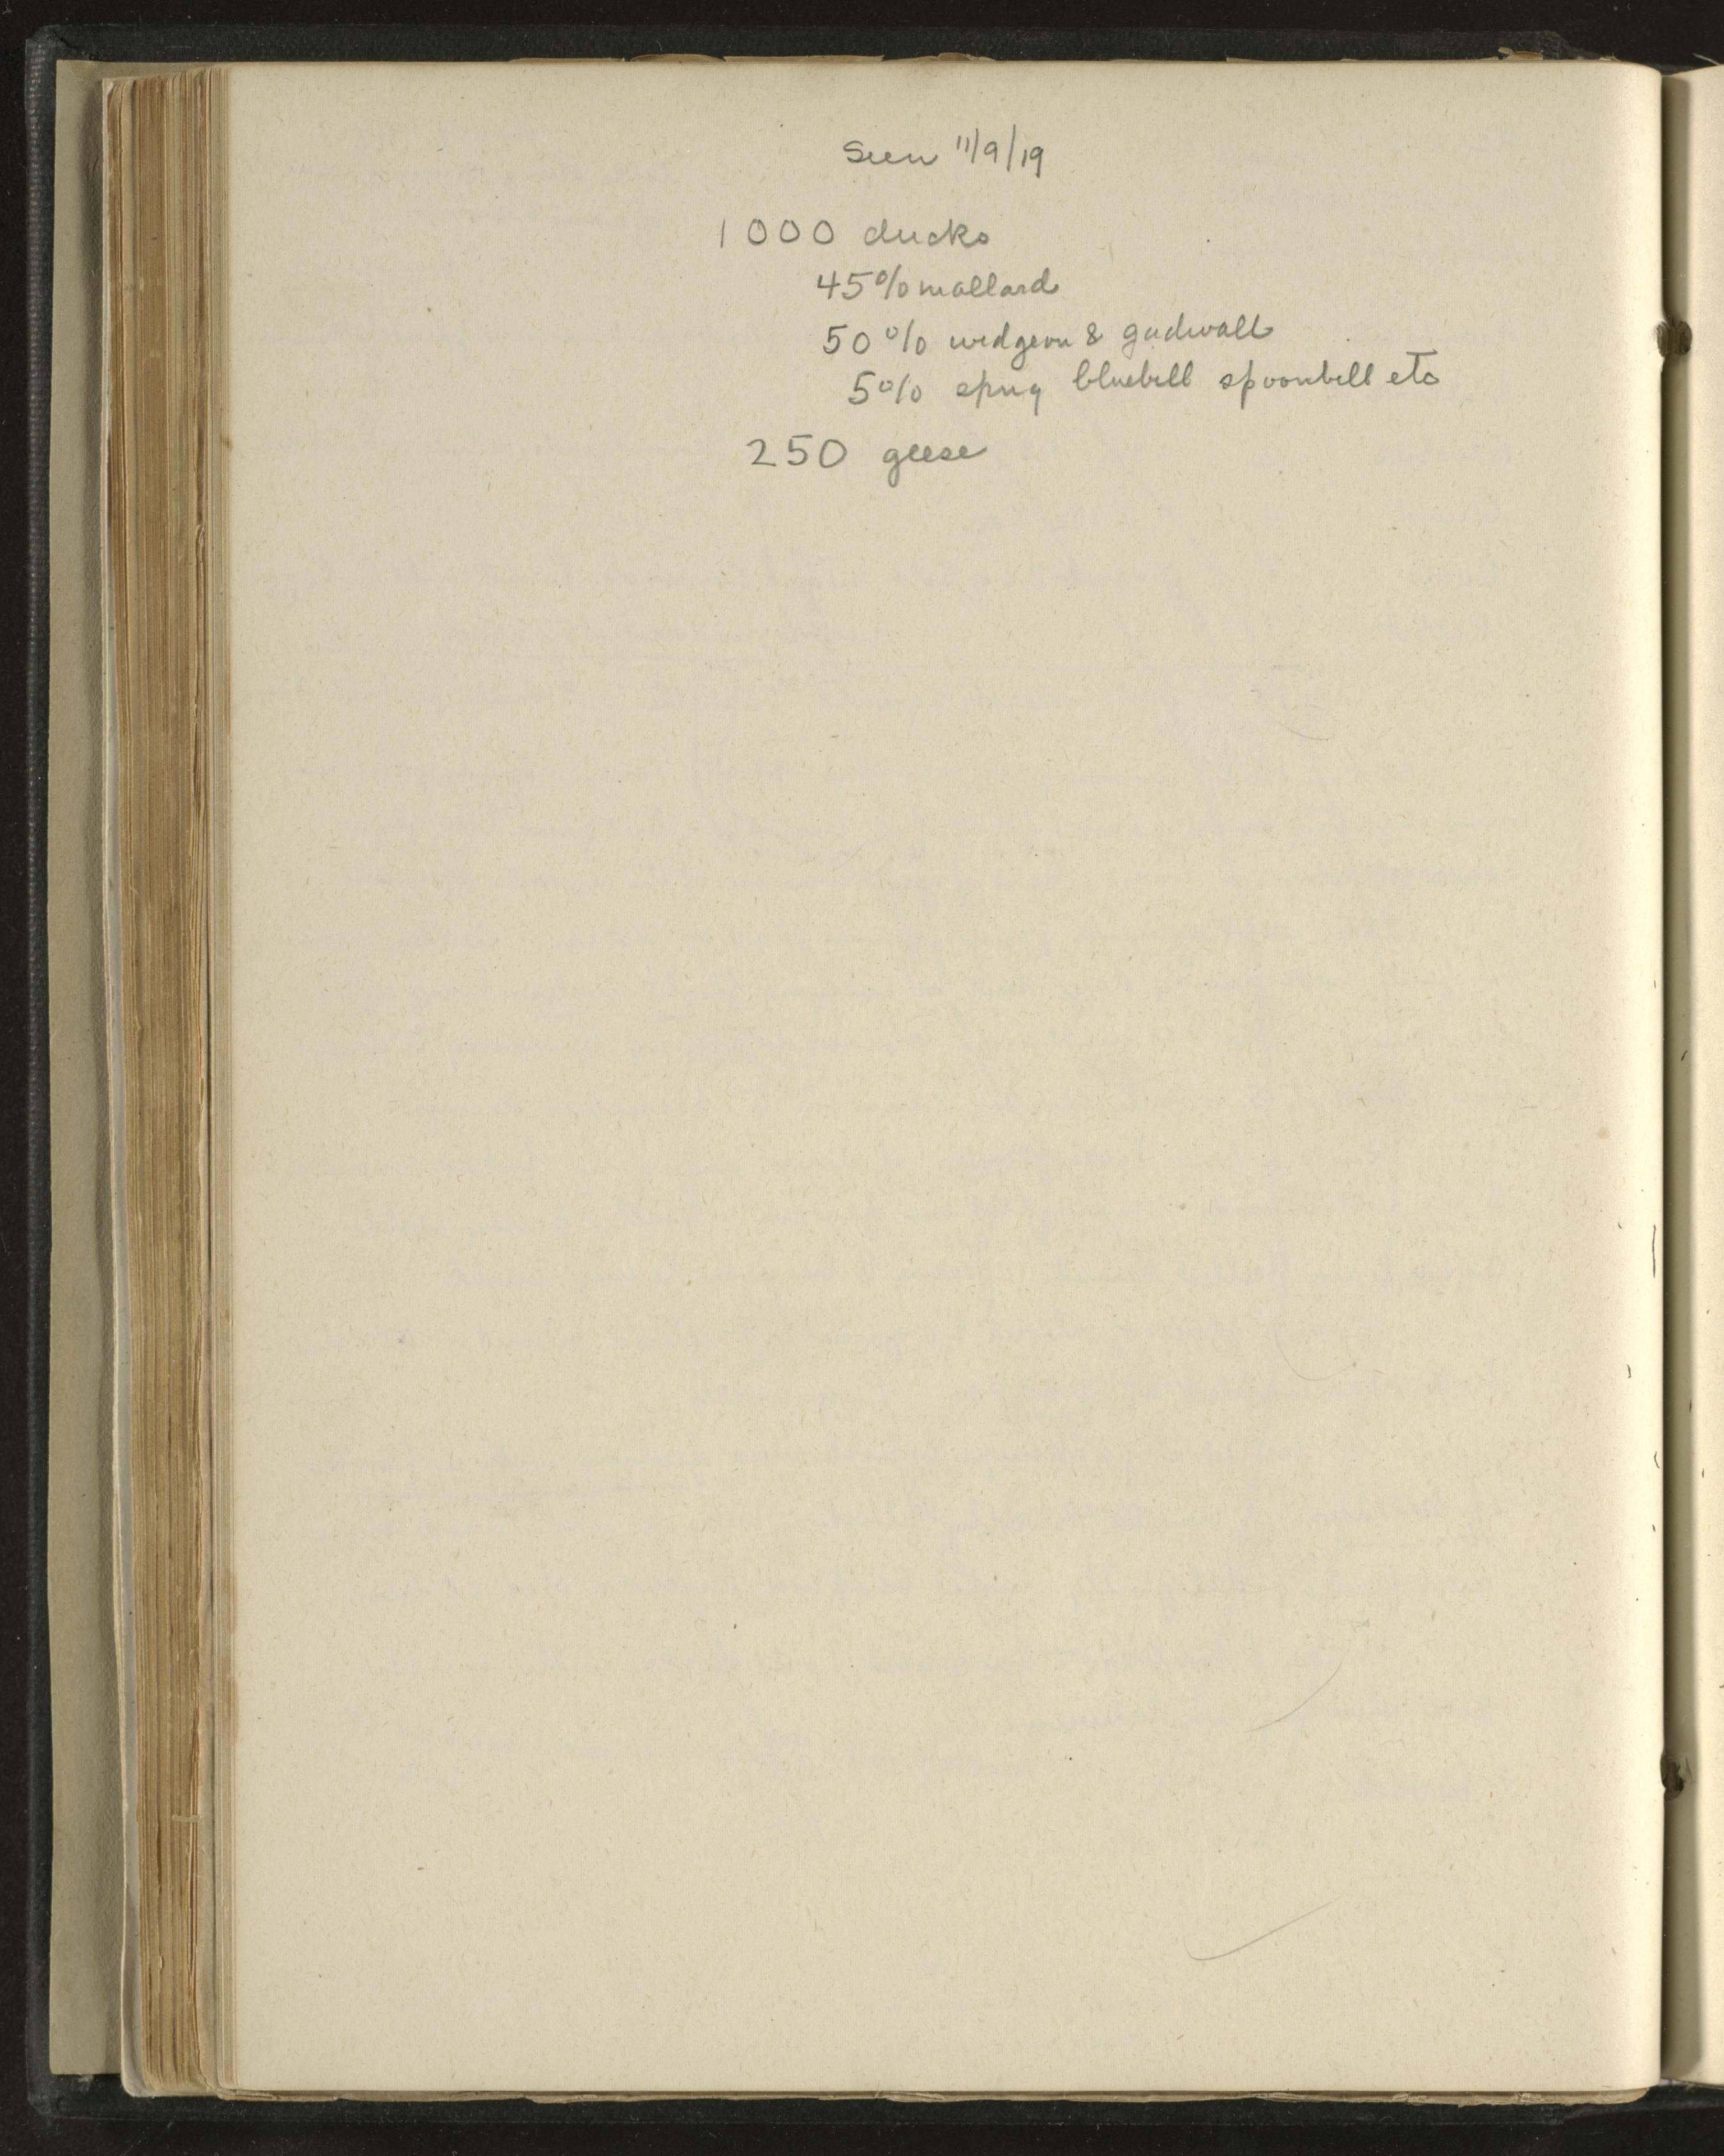 Seen 11/9/19
1000 ducks
45% mallard
50% widgeon & gadwall
5% sprig bluebill spoonbill etc
250 geese